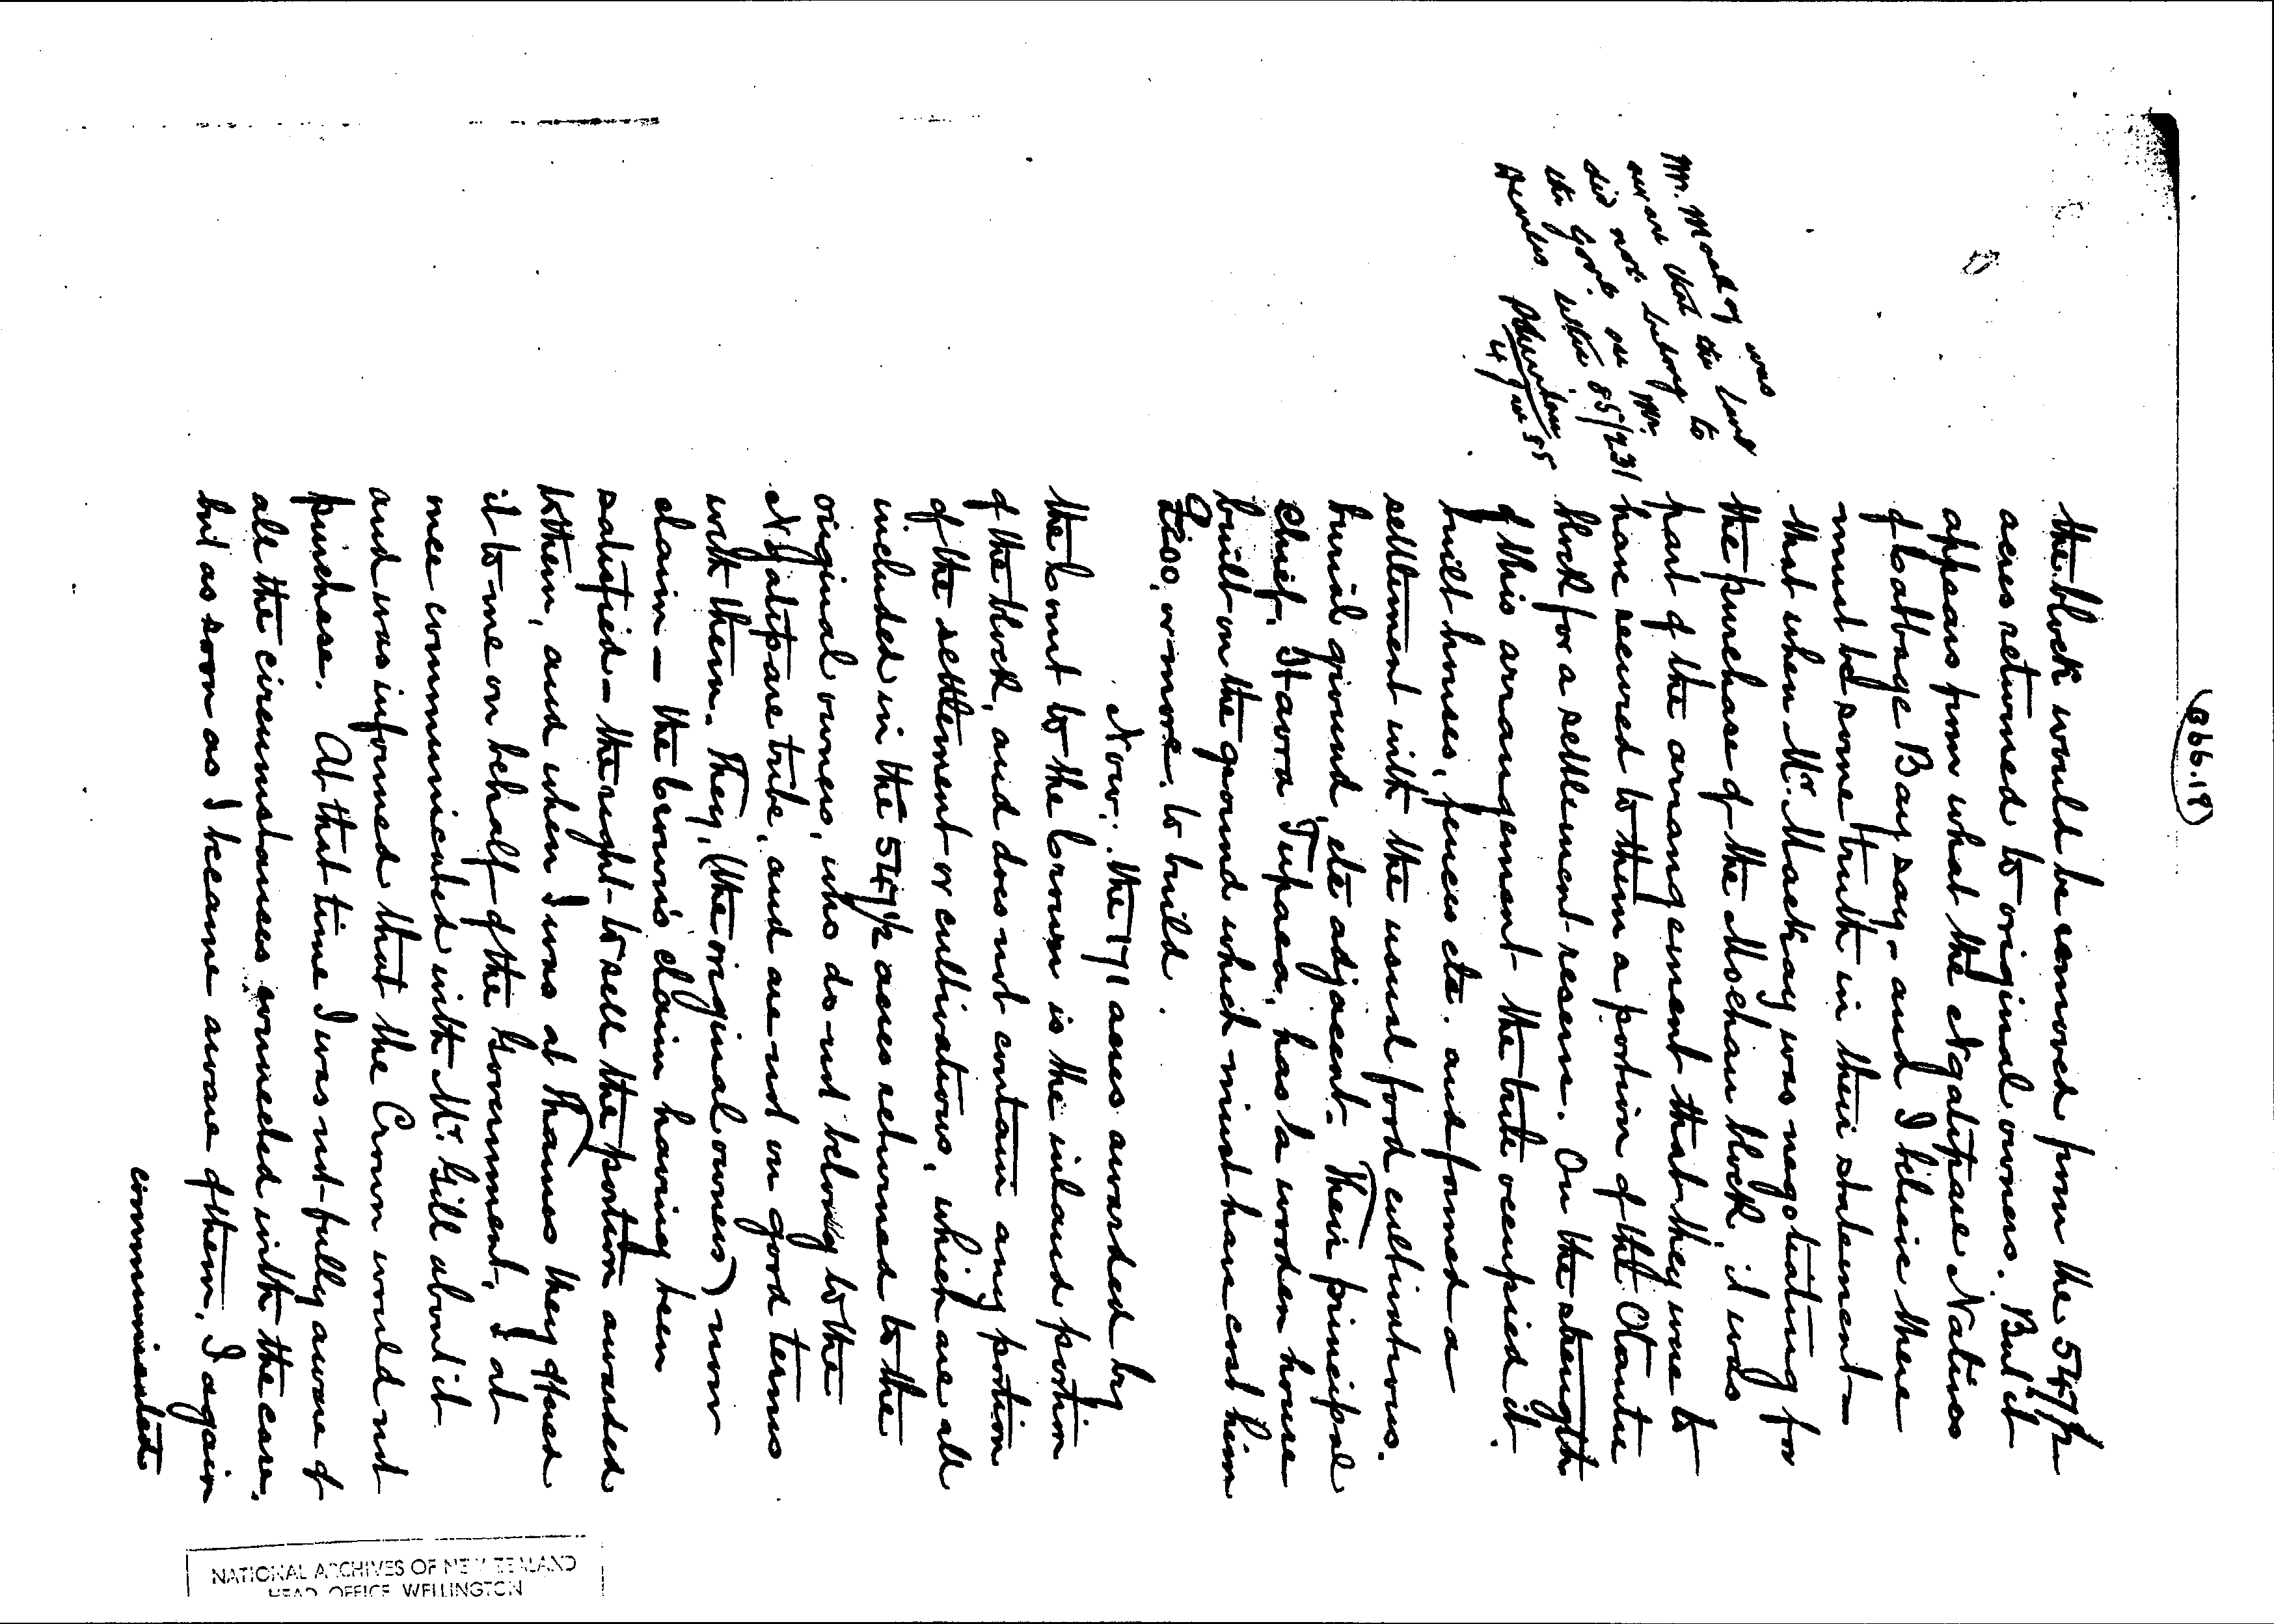 (B66.19)
the block would be removed from the 547½
acres returned to original owners. But it
appears from what the Ngatipare Natives
of Cabbage Bay say - and I believe there
must be some truth in their statement -
that when Mr. Mackay was negotiating for
the purchase of the Moehau block, it was
part of the arrangement that they were to
have secured to them a portion of the Otautu
block for a settlement reserve. On the strength
of this arrangement the tribe occupied it.
built houses, fences etc. and formed a
settlement with the usual food cultivations.
burial ground, etc adjacent. Their principal
chief, Hawra Tupaea, has a wooden house
built on the ground which must have cost him
£200, or more, to build.
Now; the 171 acres awarded by
the Court to the Crown is the inland portion
of the block, and does not contain any portion
of the settlement or cultivations, which are all
included in the 547½ acres returned to the
original owners, who do not belong to the
Ngatipare tribe, and are not on good terms
with them. They, (the original owners) now
claim - the Crown's claim having been
satisfied - the right to sell the portion awarded
to them, and when I was at Thames they offered
it to me on behalf of the Government. I at
once communicated with Mr. Gill about it
and was informed that the Crown would not
purchase. At that time I was not fully aware of
all the circumstances connected with the case.
but as soon as I became aware of them, I again
communicated
Mr. Mackay was
aware that the land
did not belong to
the Govt. see Mr.
letter 85/231
4 / 85
NATIONAL ARCHIVES OF NEW ZEALAND
HEAD OFFICE WELLINGTON